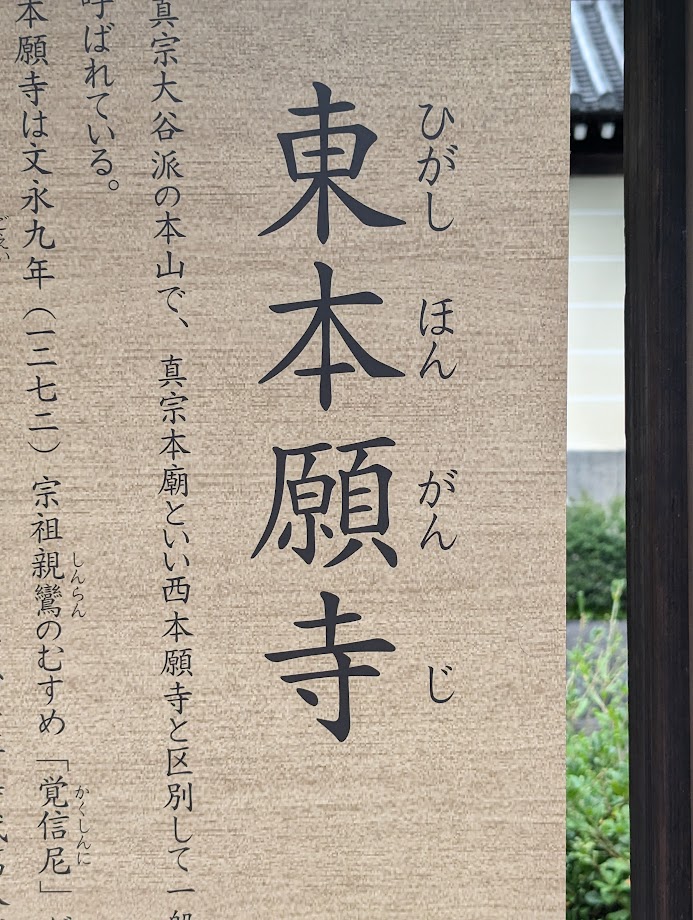 東本願寺
ひがし ほん がん じ
真宗大谷派の本山で、真宗本廟といい西本願寺と区別して一般
呼ばれている。
本願寺は文永九年(一二七二)宗祖親鸞のむすめ「覚信尼」が
しんらん
かくしんに
ごえい